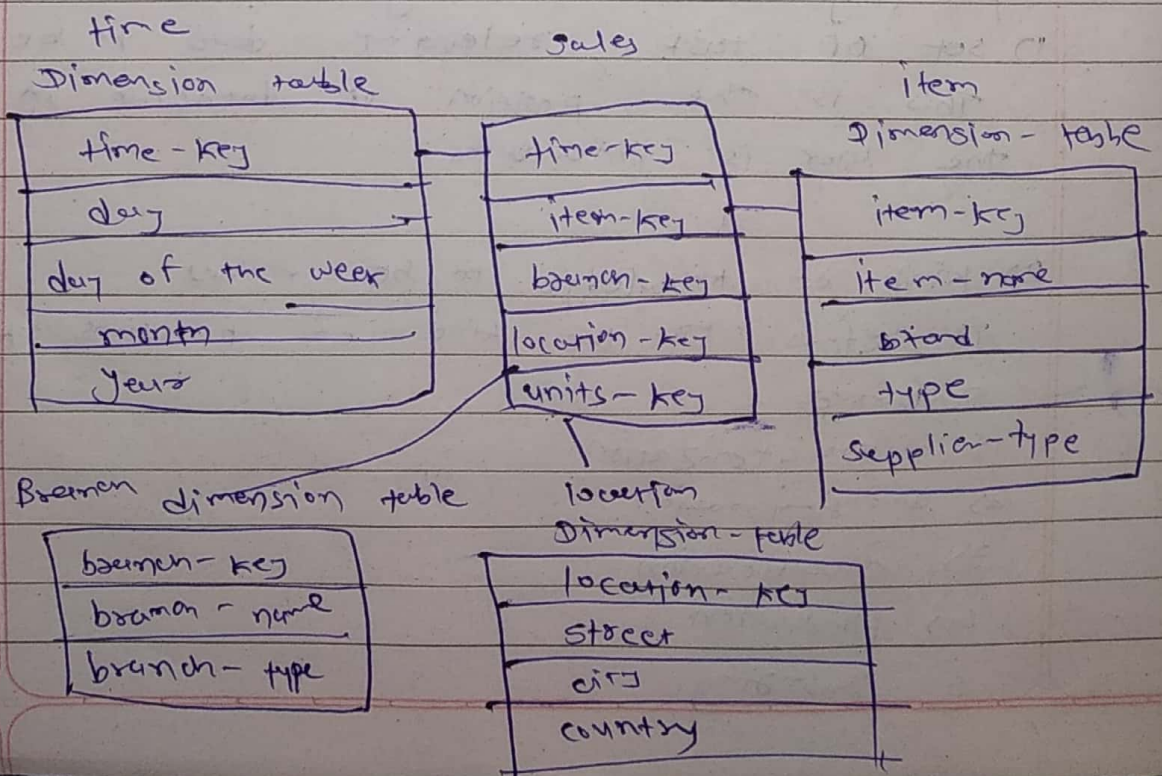 time
Dimension table
time-key
day
day of the week
month
year
sales
time-key
item-key
branch-key
location-key
units-key
item
Dimension-table
item-key
item-name
brand
type
supplier-type
Branch dimension table
branch-key
branch-name
branch-type
location
Dimension-table
location-key
street
city
country